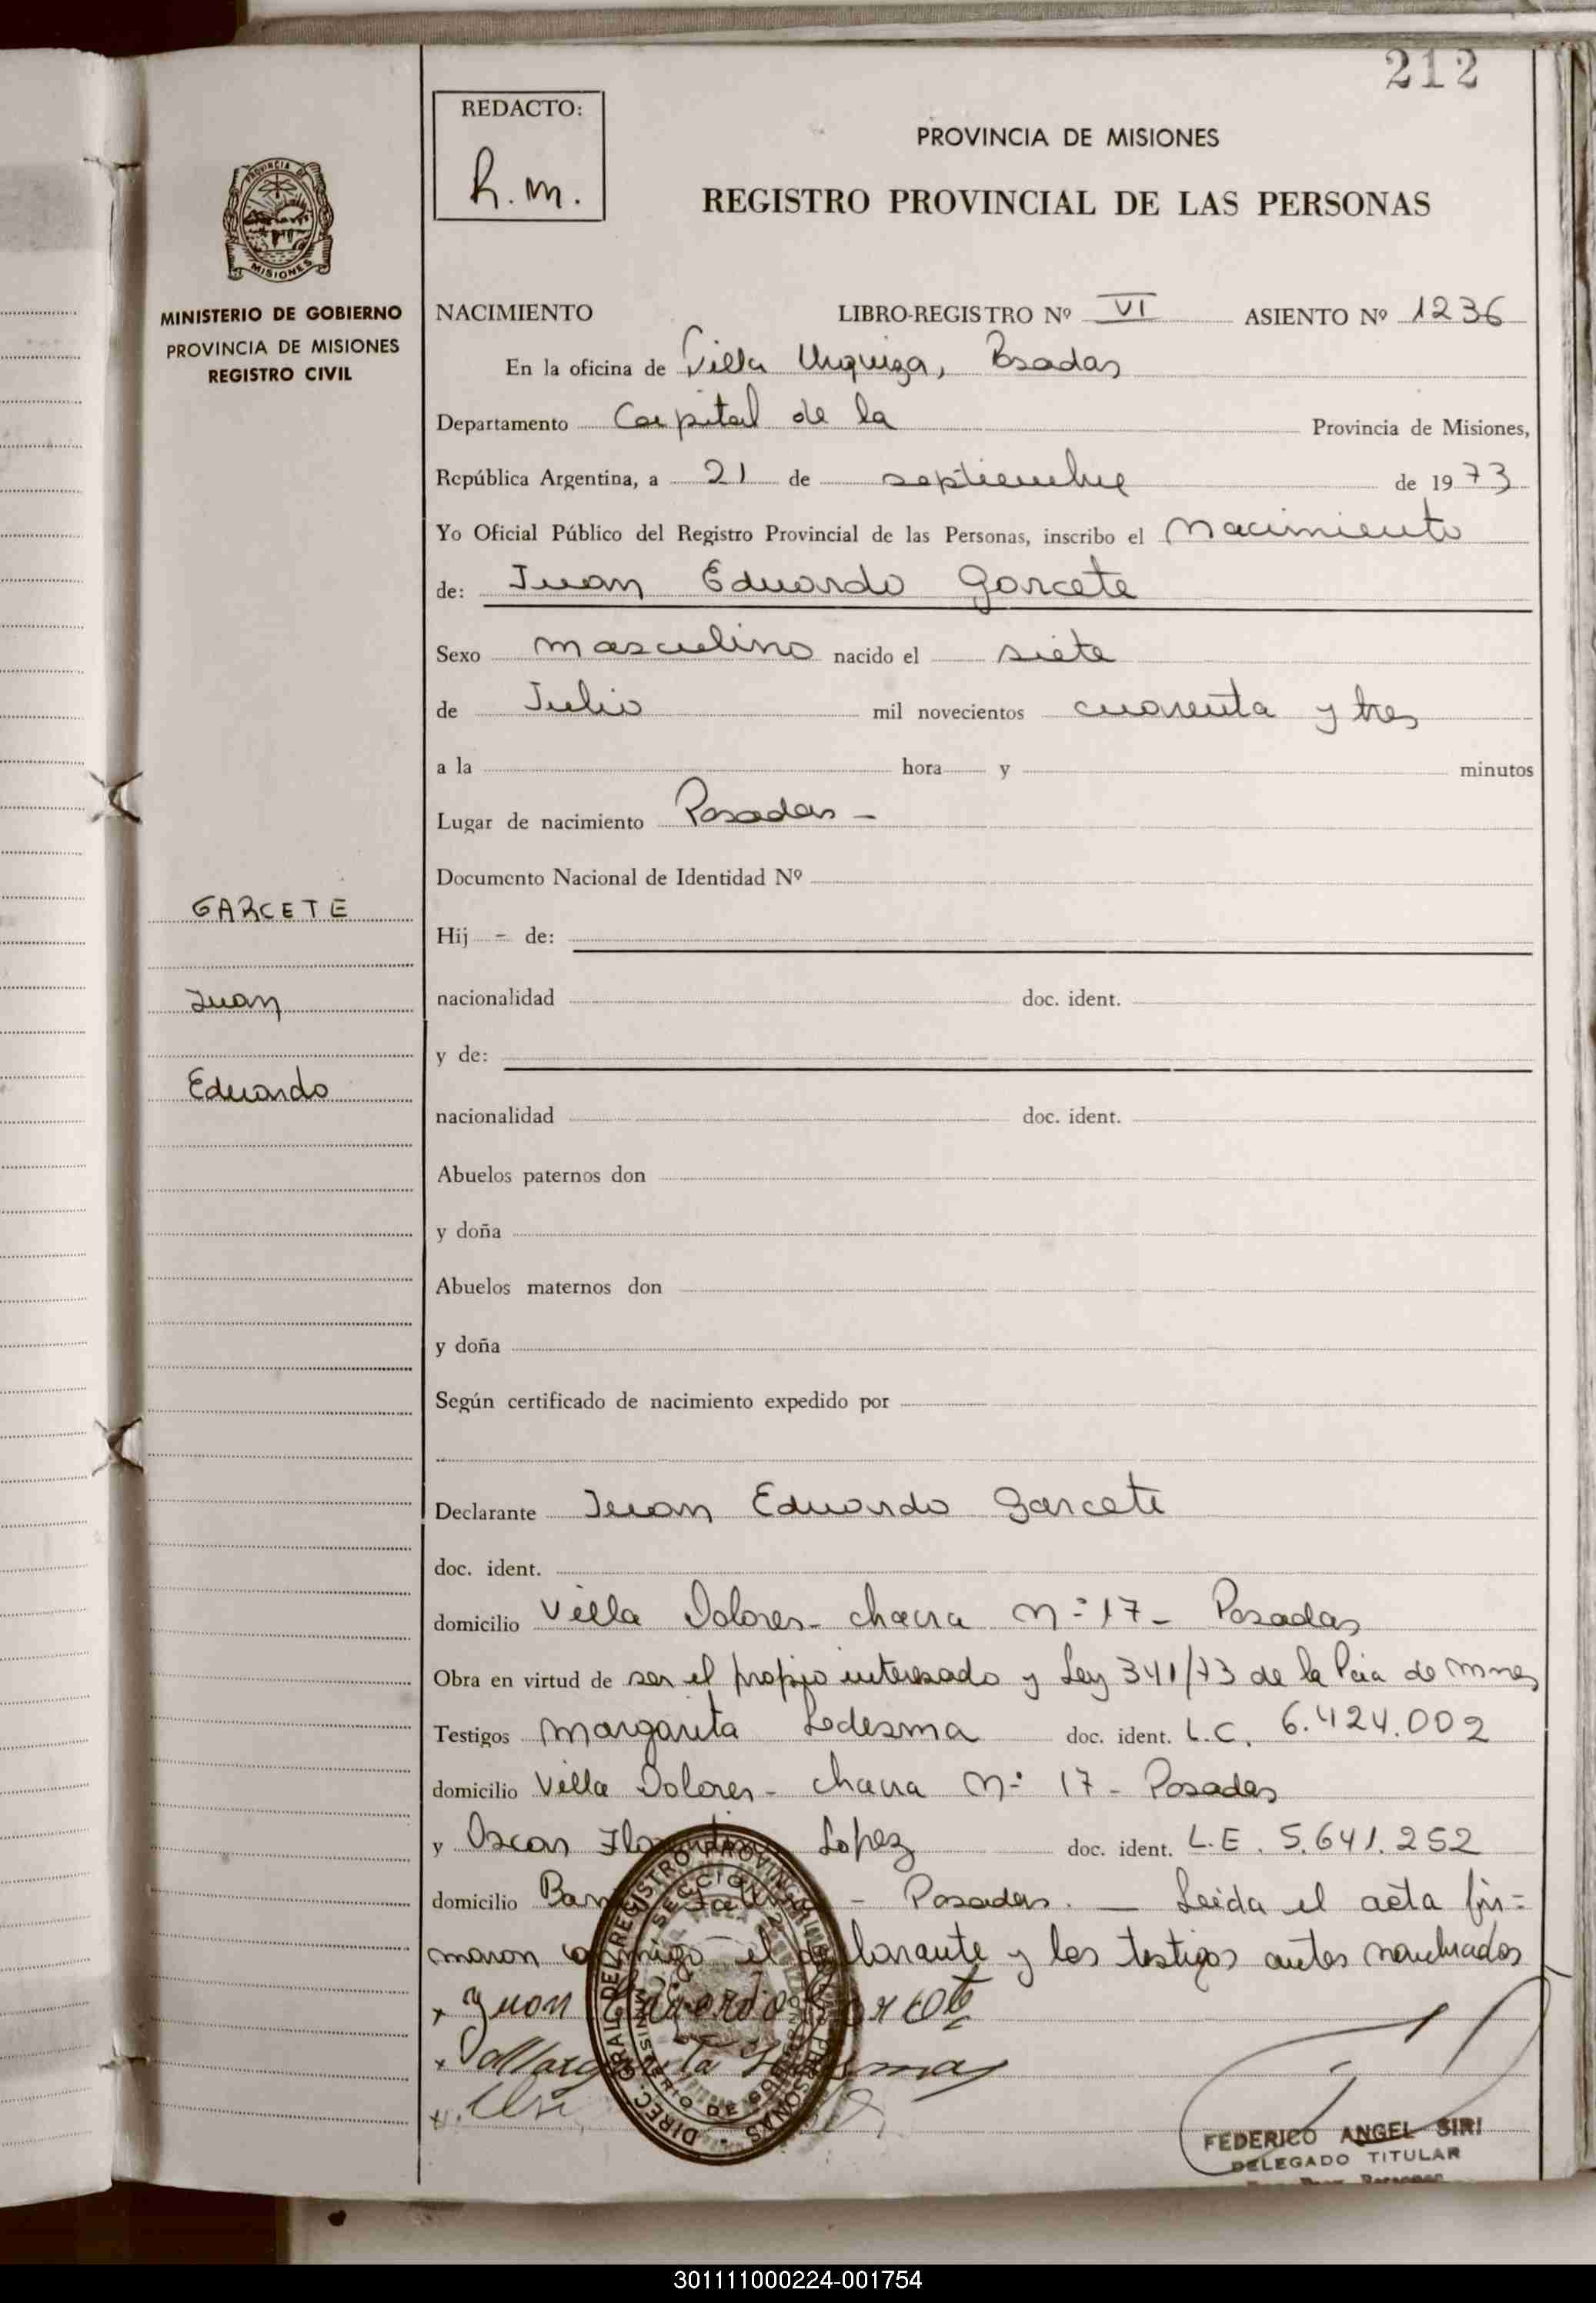 212
REDACTO:
R. m.
PROVINCIA DE MISIONES
REGISTRO PROVINCIAL DE LAS PERSONAS
PROVINCIA DE
MISIONES
MINISTERIO DE GOBIERNO
PROVINCIA DE MISIONES
REGISTRO CIVIL
NACIMIENTO LIBRO-REGISTRO Nº VI ASIENTO Nº 1236
En la oficina de Villa Urquiza, Posadas
Departamento Capital de la Provincia de Misiones,
República Argentina, a 21 de septiembre de 1973
Yo Oficial Público del Registro Provincial de las Personas, inscribo el Nacimiento
de: Juan Eduardo Garcete
Sexo masculino nacido el siete
de Julio mil novecientos cuarenta y tres
a la hora y minutos
Lugar de nacimiento Posadas -
Documento Nacional de Identidad Nº
GARCETE
Hij - de:
Juan
nacionalidad doc. ident.
y de:
Eduardo
nacionalidad doc. ident.
Abuelos paternos don
y doña
Abuelos maternos don
y doña
Según certificado de nacimiento expedido por
Declarante Juan Eduardo Garcete
doc. ident.
domicilio Villa Dolores - chacra Nº 17 - Posadas
Obra en virtud de ser el propio interesado y Ley 341/73 de la Pcia de Mnes
Testigos Margarita Ledesma doc. ident. L.C. 6.424.002
domicilio Villa Dolores - chacra Nº 17 - Posadas
y Oscar Lopez doc. ident. L.E. 5.641.252
domicilio - Posadas. — Leida el acta fir=
maron conmigo el declarante y los testigos antes nombrados
x Juan Eduardo Garcete
x Margarita Ledesma
DIREC. GRAL. DEL REGISTRO PROVINCIAL DE LAS PERSONAS
MINISTERIO DE GOBIERNO
FEDERICO ANGEL SIRI
DELEGADO TITULAR
301111000224-001754